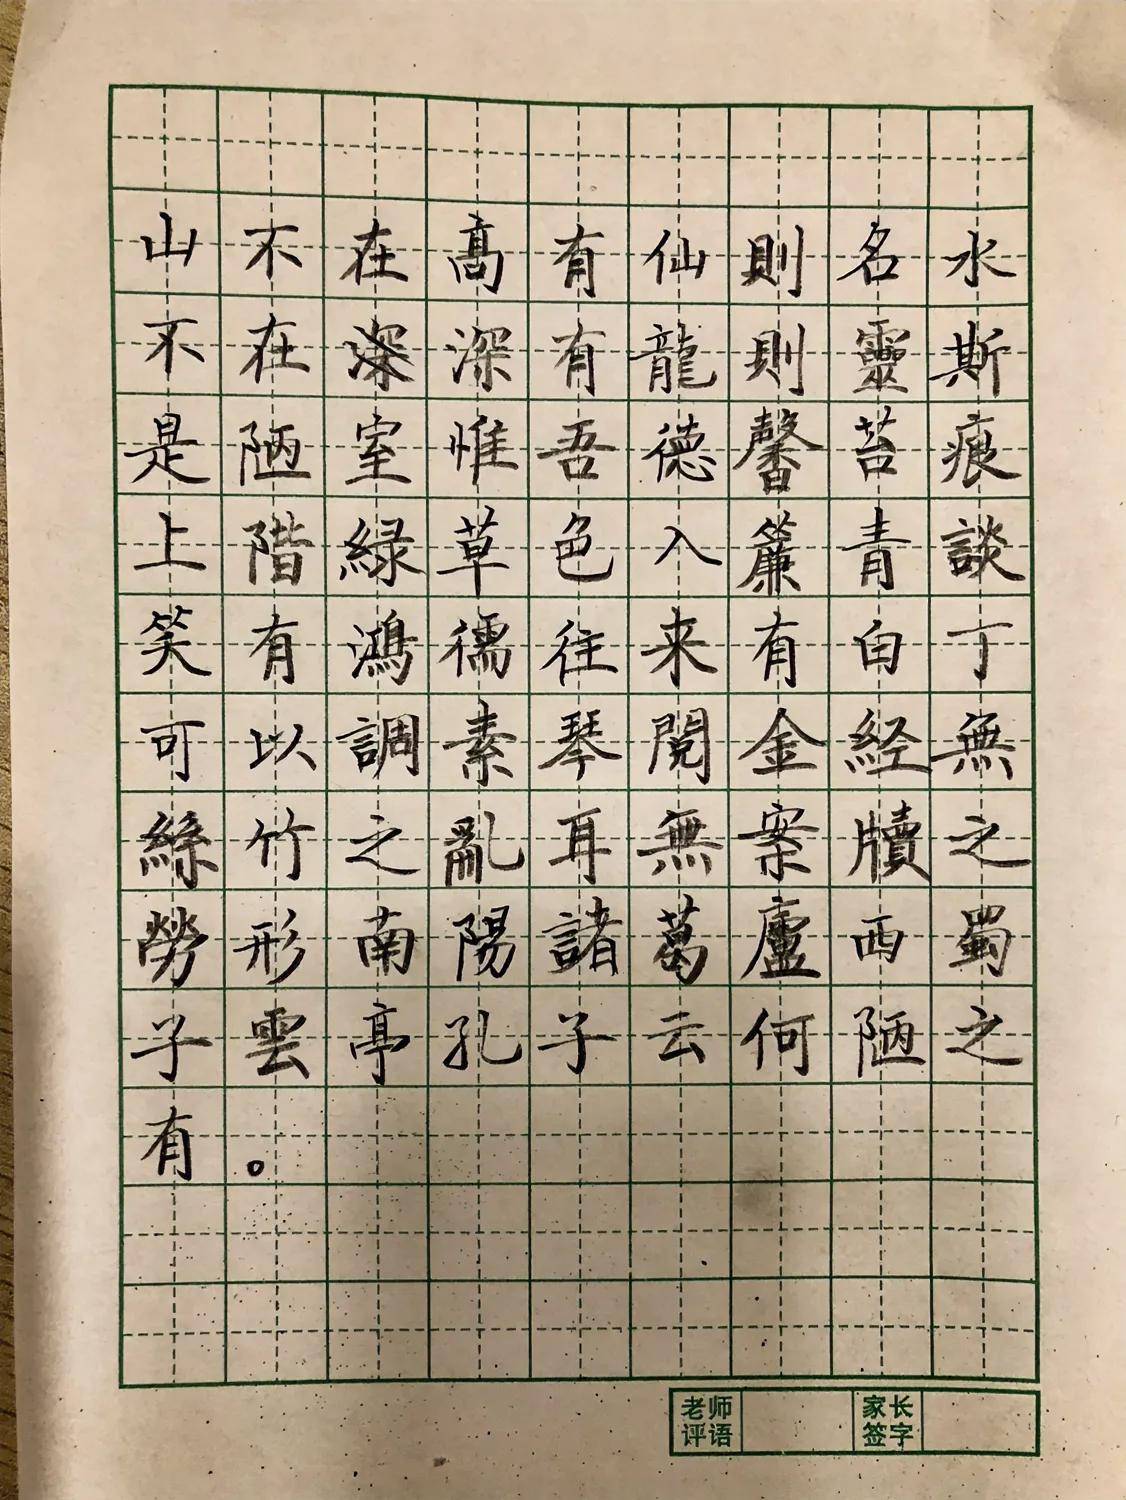 山不在髙有仙則名水
不在深深有龍則靈斯
是陋室惟吾德馨苔痕
上階緑草色入簾青談
笑有鴻儒往来有白丁
可以調素琴閲金経無
絲竹之亂耳無案牘之
勞形南陽諸葛廬西蜀
子雲亭孔子云何陋之
有。
老师评语
家长签字